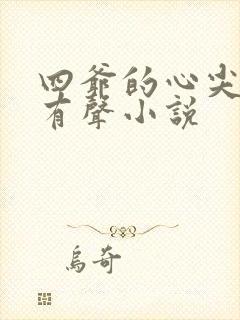 四爺的心尖
有聲小説
烏奇